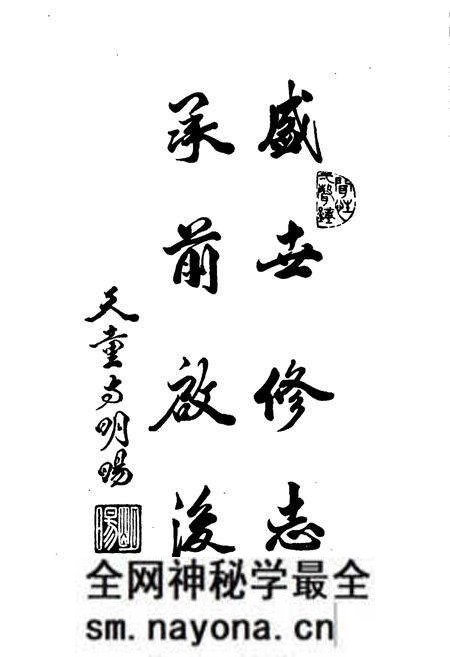 盛世修志
承前啟後
天童寺明暘
明暘
全网神秘学最全
sm.nayona.cn